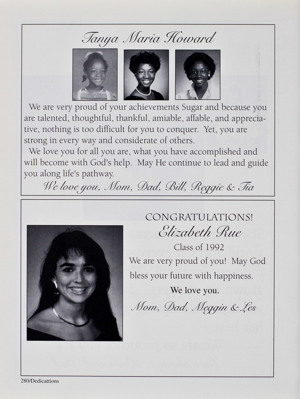 Tanya Maria Howard
We are very proud of your achievements Sugar and because you
are talented, thoughtful, thankful, amiable, affable, and apprecia-
tive, nothing is too difficult for you to conquer. Yet, you are
strong in every way and considerate of others.
We love you for all you are, what you have accomplished and
will become with God's help. May He continue to lead and guide
you along life's pathway.
We love you, Mom, Dad, Bill, Reggie & Tia
CONGRATULATIONS!
Elizabeth Rue
Class of 1992
We are very proud of you! May God
bless your future with happiness.
We love you.
Mom, Dad, Meggin & Les
280/Dedications